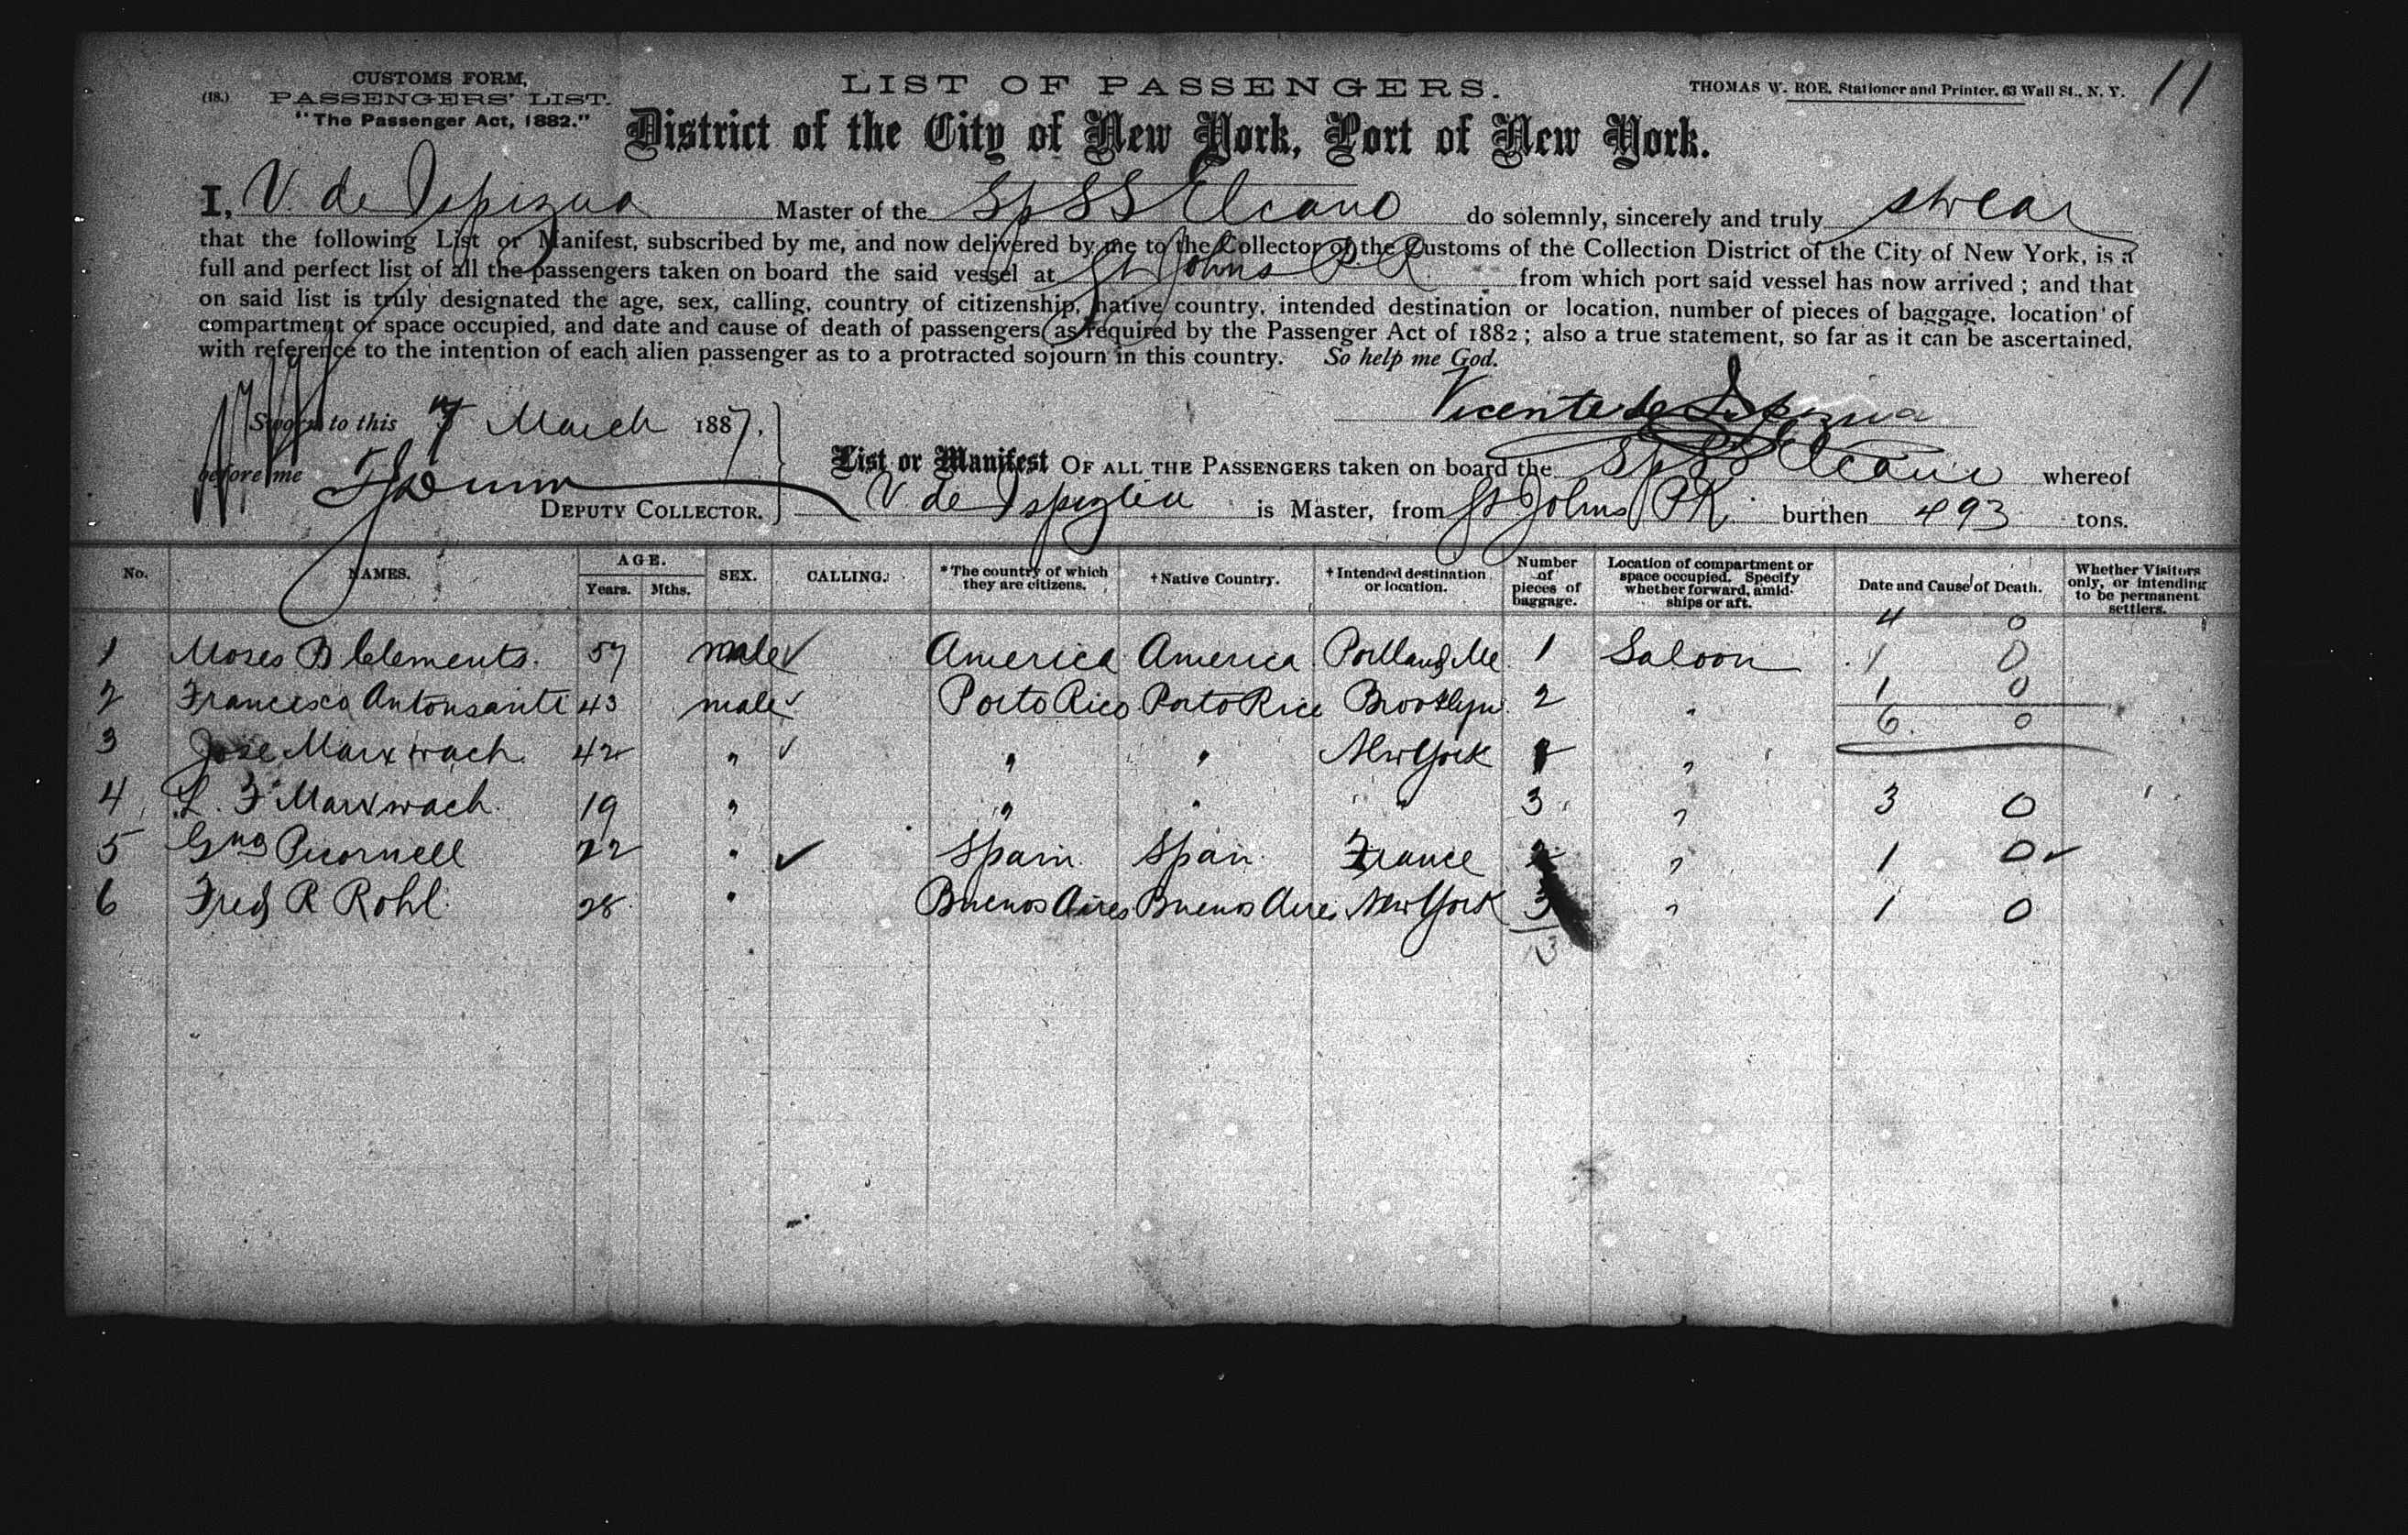 CUSTOMS FORM,
(18.) PASSENGERS' LIST.
"The Passenger Act, 1882."
LIST OF PASSENGERS.
THOMAS W. ROE, Stationer and Printer, 63 Wall St., N. Y.
11
District of the City of New York, Port of New York.
I, V. de Ispizua Master of the Sp SS Elcano do solemnly, sincerely and truly swear
that the following List or Manifest, subscribed by me, and now delivered by me to the Collector of the Customs of the Collection District of the City of New York, is a
full and perfect list of all the passengers taken on board the said vessel at St Johns P.R. from which port said vessel has now arrived ; and that
on said list is truly designated the age, sex, calling, country of citizenship, native country, intended destination or location, number of pieces of baggage, location of
compartment or space occupied, and date and cause of death of passengers (as required by the Passenger Act of 1882 ; also a true statement, so far as it can be ascertained,
with reference to the intention of each alien passenger as to a protracted sojourn in this country. So help me God.
Vicente de Ispizua
Sworn to this March 1887,
before me
DEPUTY COLLECTOR.
List or Manifest OF ALL THE PASSENGERS taken on board the Sp SS Elcano whereof
V de Ispizua is Master, from St Johns PR. burthen 493 tons.
No. NAMES. AGE. Years. Mths. SEX. CALLING. *The country of which they are citizens. †Native Country. †Intended destination or location. Number of pieces of baggage. Location of compartment or space occupied. Specify whether forward, amidships or aft. Date and Cause of Death. Whether Visitors only, or intending to be permanent settlers.
4 0
1 Moses B Clements. 57 male America America Portland Me 1 Saloon 1 0
1 0
2 Francisco Antonsanti 43 male Porto Rico Porto Rico Brooklyn 2 "
6 0
3 Jose Marxwach 42 " " " New York "
4 L. F Marxwach. 19 " " " " 3 " 3 0
5 Gmo Picornell 22 " Spain Spain France " 1 0
6 Fred R Rohl 28 " Buenos Aires Buenos Aires New York 3 " 1 0
13